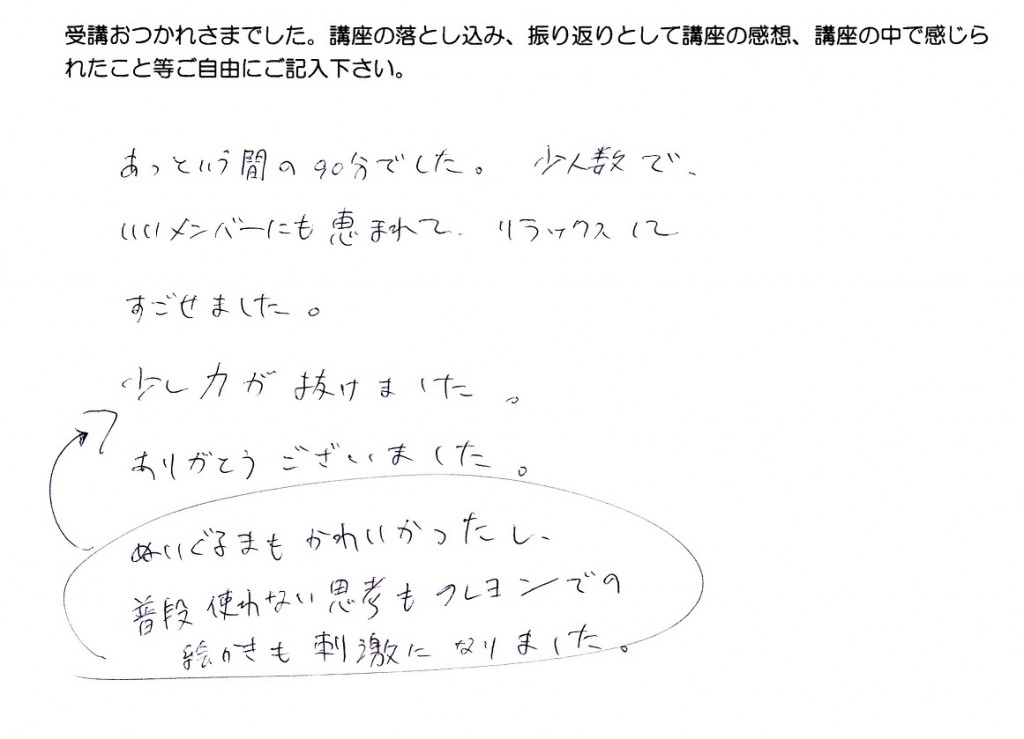 受講おつかれさまでした。講座の落とし込み、振り返りとして講座の感想、講座の中で感じら
れたこと等ご自由にご記入下さい。
あっという間の90分でした。 少人数で、
いいメンバーにも恵まれて、リラックスして
すごせました。
少し力が抜けました。
ありがとうございました。
ぬいぐるまもかわいかったし、
普段使わない思考もクレヨンでの
絵かきも刺激になりました。